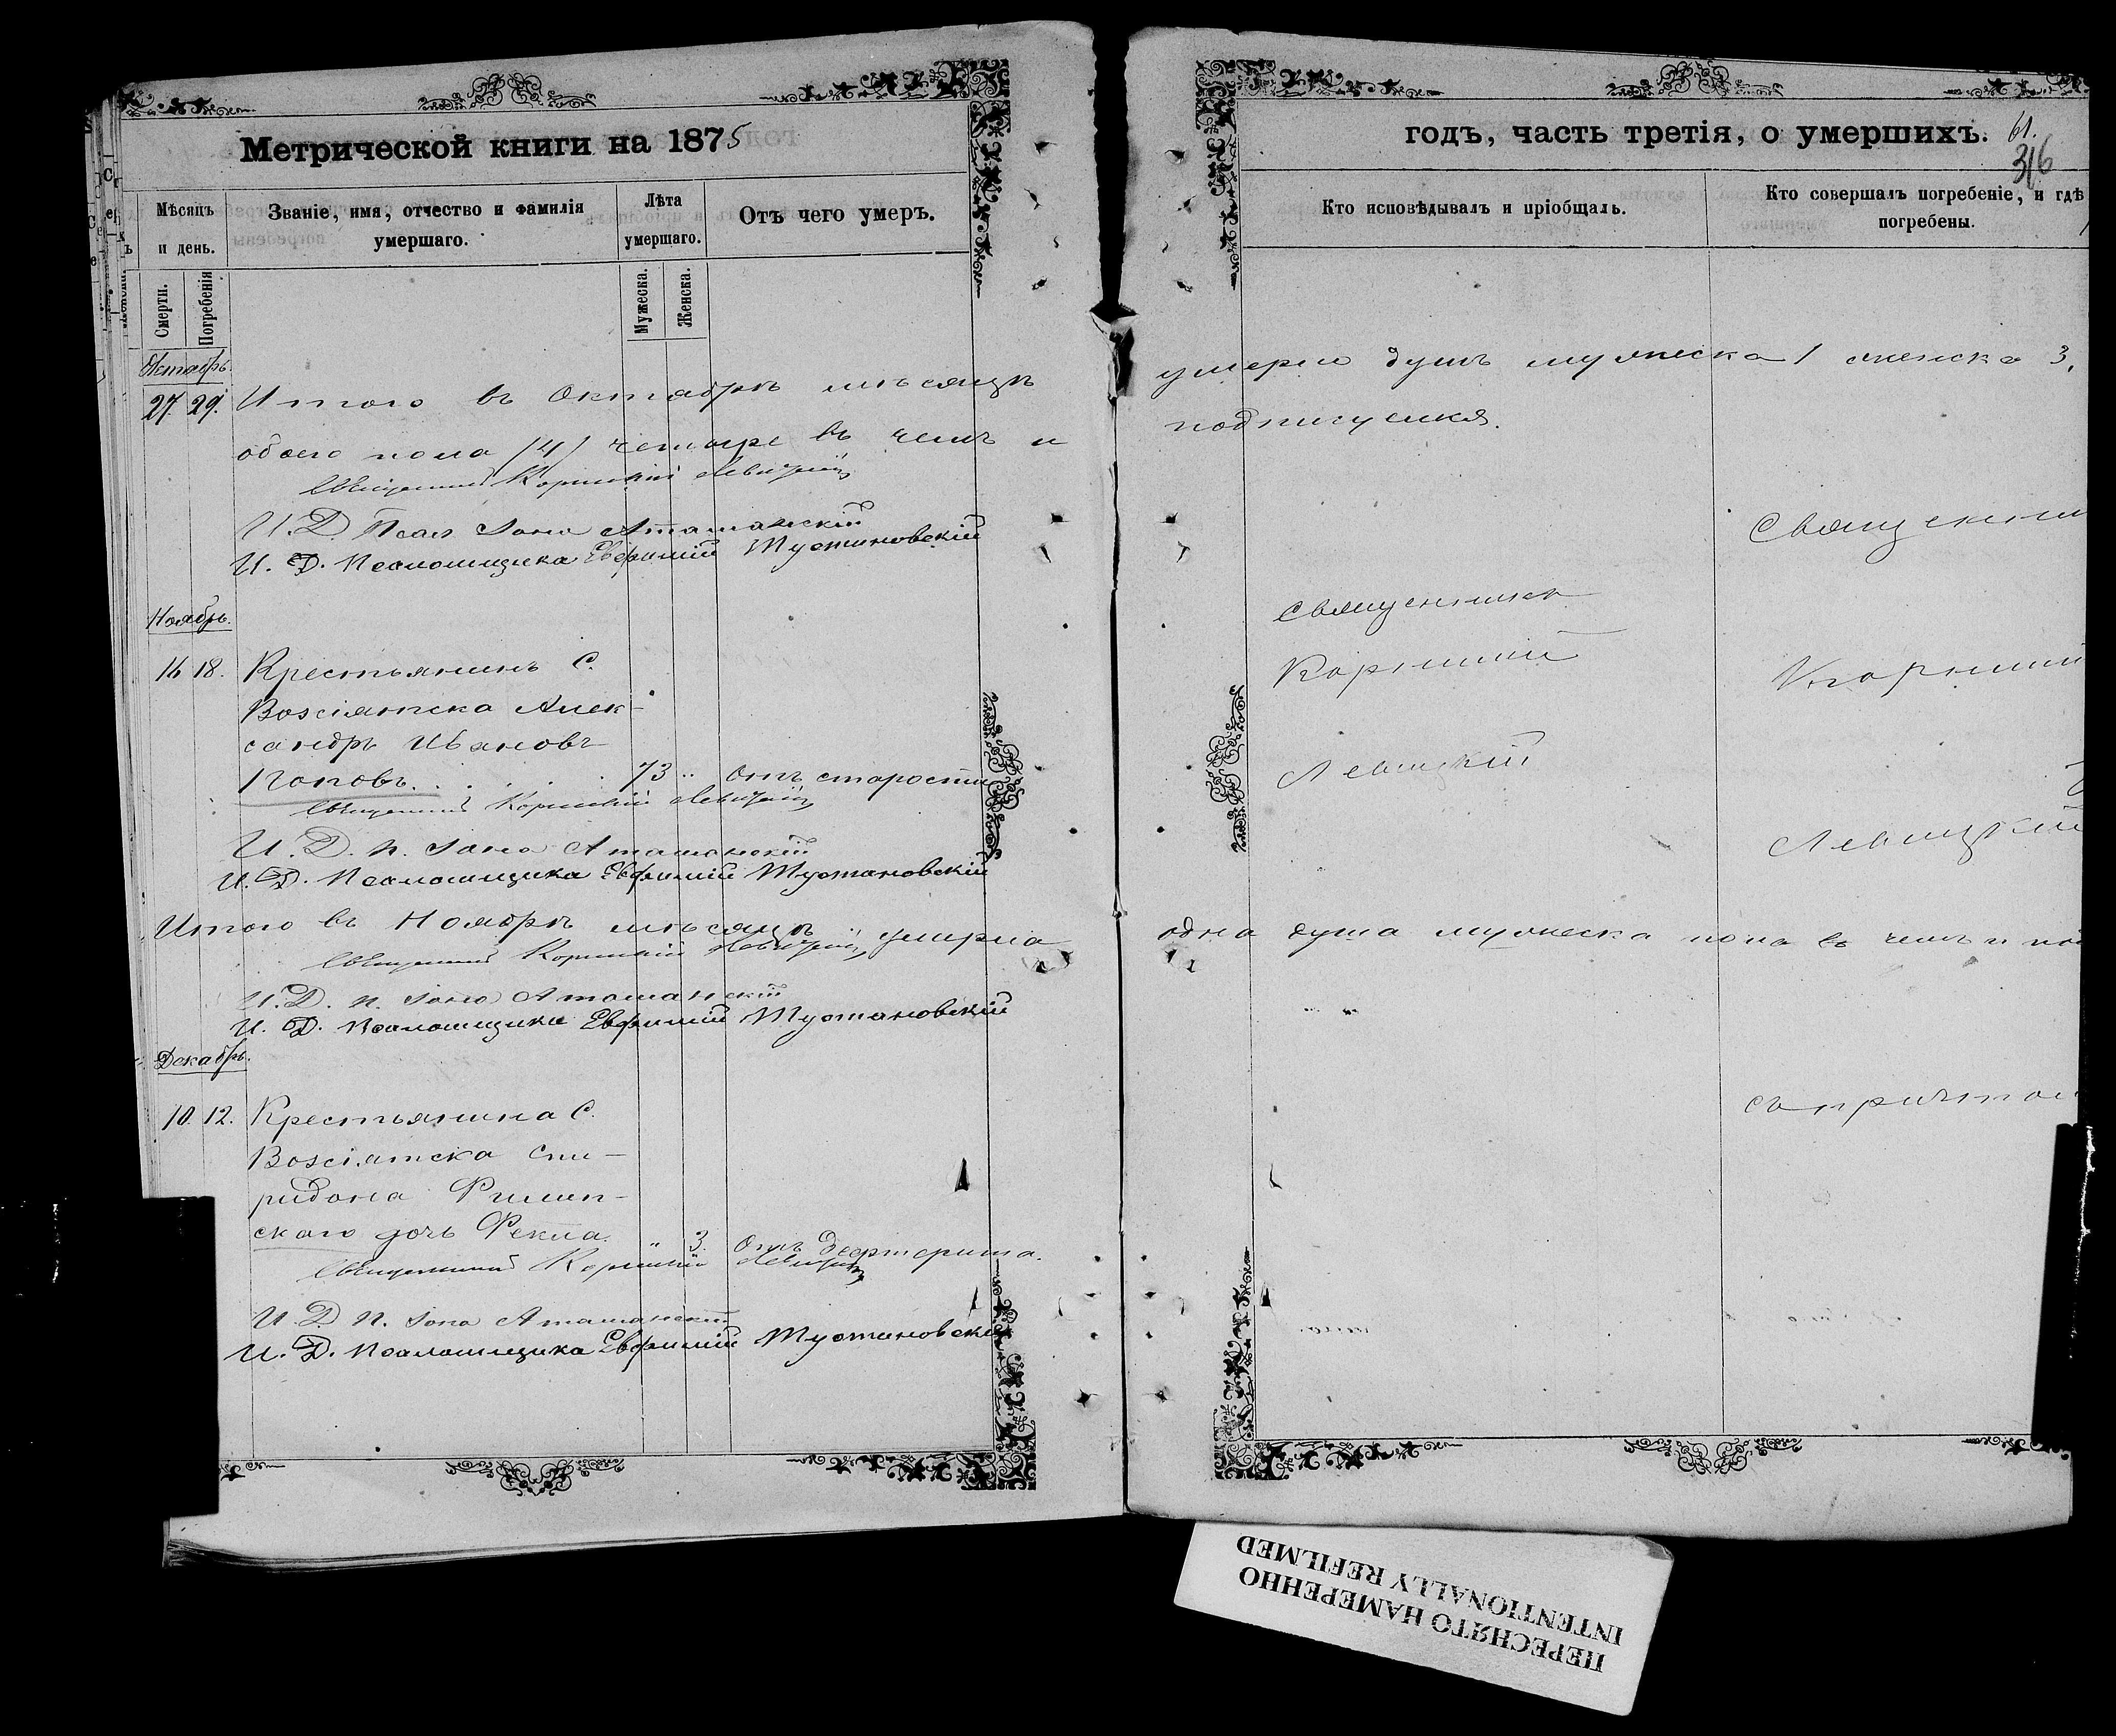 Метрической книги на 1875
Мѣсяцъ и день.
Званіе, имя, отчество и фамилія умершаго.
Лѣта умершаго.
Отъ чего умеръ.
Смерти.
Погребенія
Мужеска.
Женска.
Октябрь.
27. 29. Итого въ Октябрѣ мѣсяцѣ
обоего пола (4) четыре въ чемъ и
Священникъ Корнилій Левицкій
И. Д. Псал Іона Аташанскій
И. Д. Псаломщика Евфимій Тустановскій
Ноябрь.
16 18. Крестьянинъ С.
Возсіятска Алек-
сандръ Ивановъ
Поповъ. 73 " Отъ старости
Священникъ Корнилій Левицкій
И. Д. п. Іона Аташанскій
И. Д. Псаломщика Евфимій Тустановскій
Итого въ Ноябрѣ мѣсяцѣ умерла
Священникъ Корнилій Левицкій
И. Д. п. Іона Аташанскій
И. Д. Псаломщика Евфимій Тустановскій
Декабрь.
10. 12. Крестьянина С.
Возсіятска Спи-
ридона Филип-
скаго дочь Фекла. " 3. Отъ дефтерита.
Священникъ Корнилій Левицкій
И. Д. п. Іона Аташанскій
И. Д. Псаломщика Евфимій Тустановскій
годъ, часть третія, о умершихъ. 61.
316
Кто исповѣдывалъ и пріобщалъ.
Кто совершалъ погребеніе, и гдѣ
погребены.
умерло душъ мужеска 1 женска 3,
подпишуемся.
Священникъ
Корнилій
Левицкій
Священни
Корнилі
Левицкій
одна душа мужеска пола въ чемъ и по
съ причтом
ПЕРЕСНЯТО НАМЕРЕННО
INTENTIONALLY REFILMED